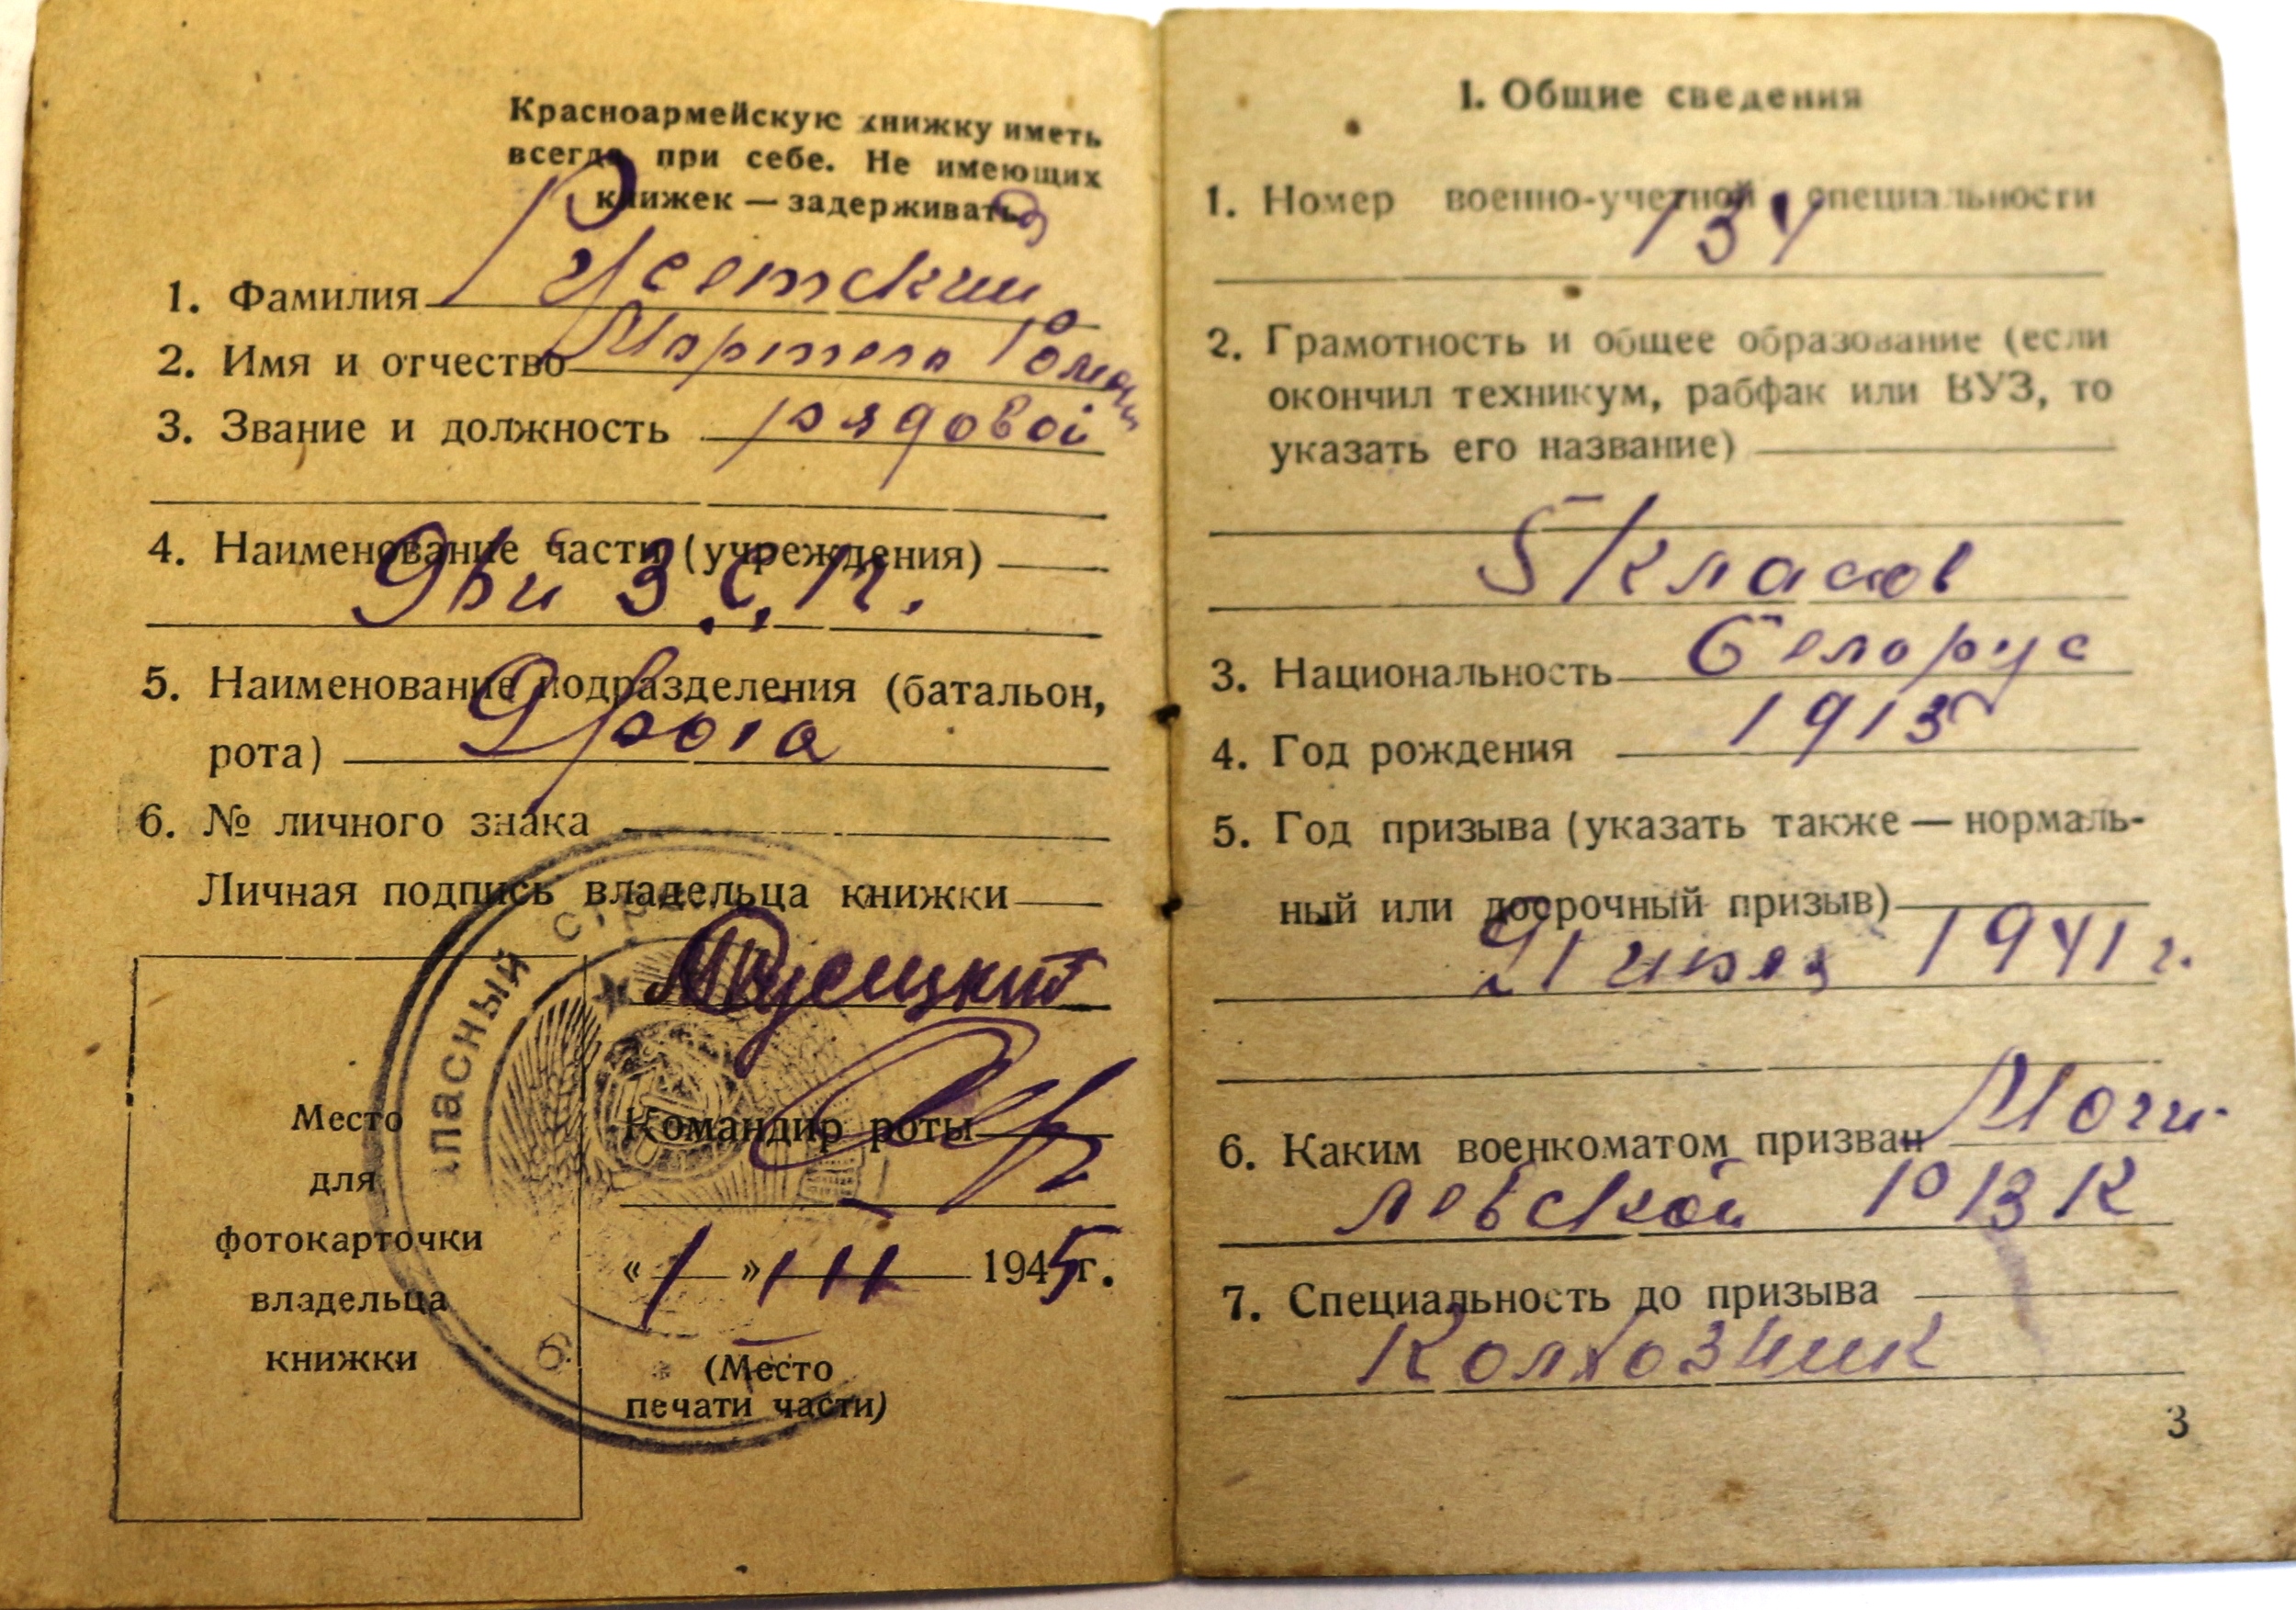 Красноармейскую книжку иметь
всегда при себе. Не имеющих
книжек — задерживать
1. Фамилия
2. Имя и отчество
3. Звание и должность рядовой
4. Наименование части (учреждения)
З.С.П.
5. Наименование подразделения (батальон,
рота) рота
6. № личного знака
Личная подпись владельца книжки
Место
для
фотокарточки
владельца
книжки
Командир роты
«1» III 1945 г.
(Место
печати части)
1. Общие сведения
1. Номер военно-учетной специальности
134
2. Грамотность и общее образование (если
окончил техникум, рабфак или ВУЗ, то
указать его название)
5 класов
3. Национальность Белорус
4. Год рождения 1913
5. Год призыва (указать также — нормаль-
ный или досрочный призыв)
1941 г.
6. Каким военкоматом призван Моги-
левской РВК
7. Специальность до призыва
Колхозник
3